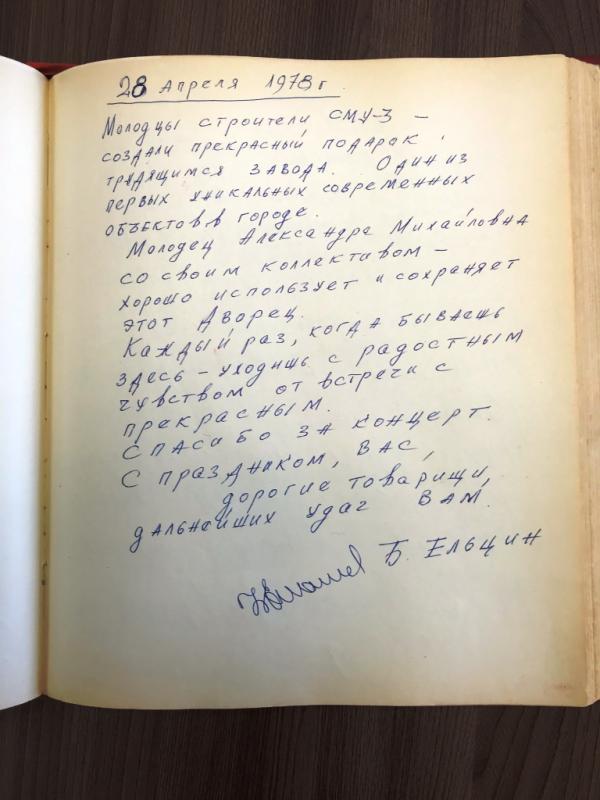 28 Апреля 1978 г.
Молодцы строители СМУ-3 –
создали прекрасный подарок
трудящимся завода. Один из
первых уникальных современных
объектов в городе.
Молодец Александра Михайловна
со своим коллективом –
хорошо использует и сохраняет
этот Дворец.
Каждый раз, когда бываешь
здесь – уходишь с радостным
чувством от встречи с
прекрасным.
Спасибо за концерт.
С праздником, Вас,
дорогие товарищи,
дальнейших удач Вам.
Б. Ельцин